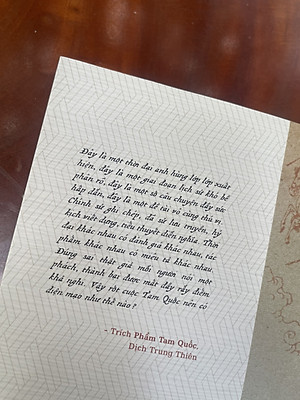 Đây là một thời đại anh hùng lớp lớp xuất
hiện, đây là một giai đoạn lịch sử khó bề
phán rõ, đây là một sử câu chuyện đầy sức
hấp dẫn, đây là một đề tài vô cùng thú vị.
Chính sử ghi chép, dã sử lưu truyền, hý
kịch viết dựng, tiểu thuyết diễn nghĩa. Thời
đại khác nhau có đánh giá khác nhau, tác
phẩm khác nhau có miêu tả khác nhau.
Đúng sai thật giả mỗi người nói một
phách, thành bại được mất đầy rẫy điểm
khả nghi. Vậy rốt cuộc Tam Quốc nên có
diện mạo như thế nào?
- Trích Phẩm Tam Quốc,
Dịch Trung Thiên